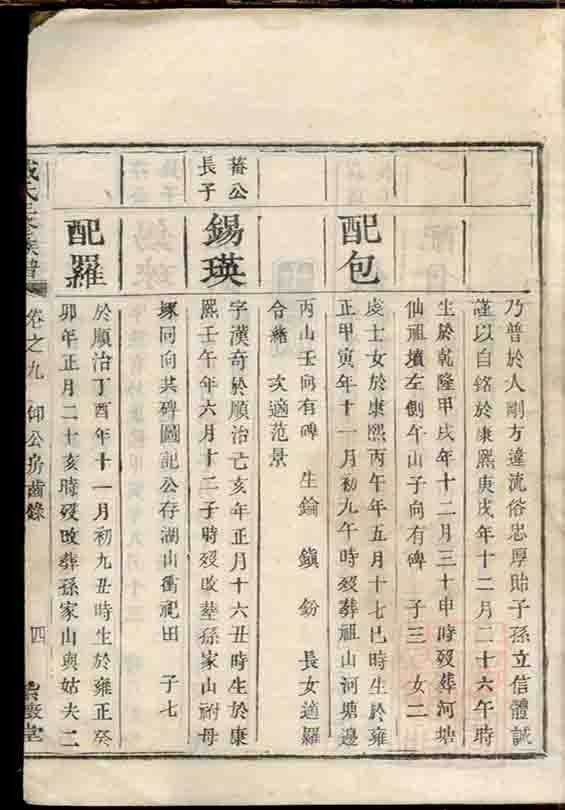 乃普於人剛方違流俗忠厚貽子孫立信體誠
謹以自銘於康熙庚戌年十二月二十六午時
生於乾隆甲戌年十二月三十申時歿葬河塘
仙祖墳左側午山子向有碑 子三 女二
配包
處士女於康熙丙午年五月十七巳時生於雍
正甲寅年十一月初九午時歿葬祖山河塘邊
丙山壬向有碑 生錀 鎮 鈖 長女適羅
合緒 次適范景
蕃公
長子
錫瑛
字漢奇於順治己亥年正月十六丑時生於康
熙壬午年六月十二子時歿改塟孫家山祔母
塚同向其碑圖記公存湖山衝祀田 子七
配羅
於順治丁酉年十一月初九丑時生於雍正癸
卯年正月二十亥時歿改葬孫家山與姑夫二
氏 族譜
卷之九 仰公房齒錄
四
堂